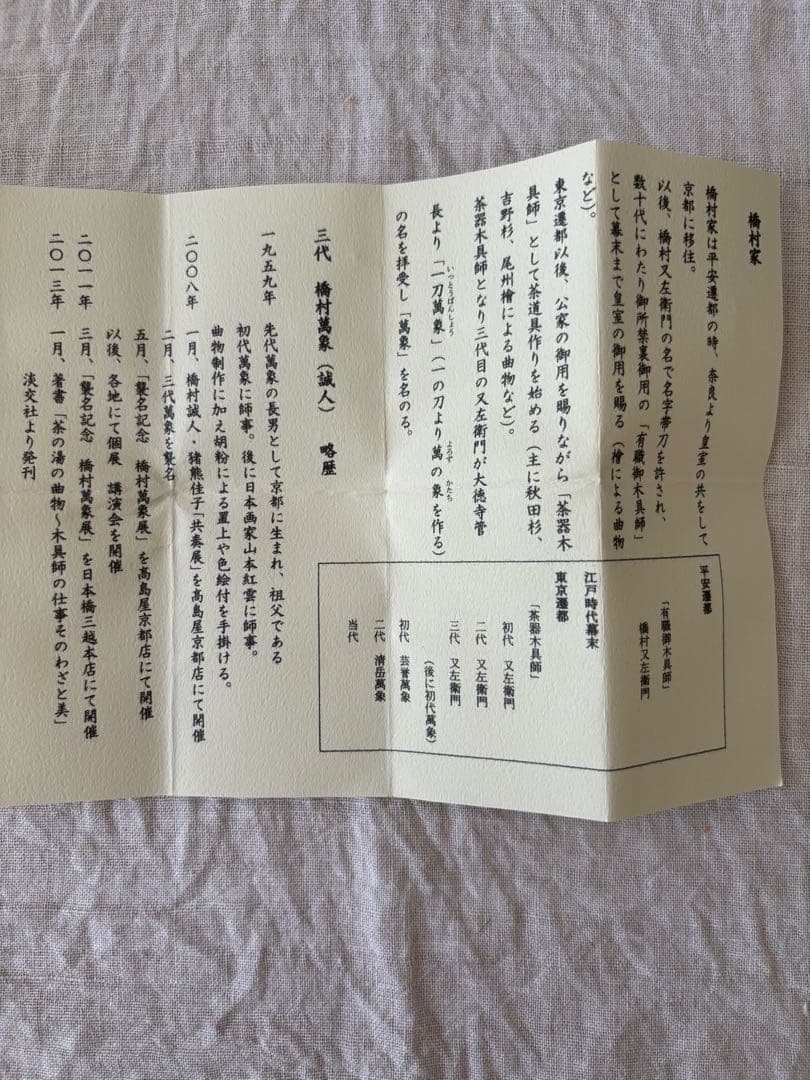 橋村家
橋村家は平安遷都の時、奈良より皇室の共をして
京都に移住。
以後、橋村又左衛門の名で名字帯刀を許され、
数十代にわたり御所禁裏御用の「有職御木具師」
として幕末まで皇室の御用を賜る（檜による曲物
など）。
東京遷都以後、公家の御用を賜りながら「茶器木
具師」として茶道具作りを始める（主に秋田杉、
吉野杉、尾州檜による曲物など）。
茶器木具師となり三代目の又左衛門が大徳寺管
長より「一刀萬象」（一の刀より萬の象を作る）
いっとうばんしょう
よろず
かたち
の名を拝受し「萬象」を名のる。
平安遷都
「有職御木具師」
橋村又左衛門
江戸時代幕末
東京遷都
「茶器木具師」
初代 又左衛門
二代 又左衛門
三代 又左衛門
（後に初代萬象）
初代 芸誉萬象
二代 清岳萬象
当代
三代 橋村萬象（誠人） 略歴
一九五九年 先代萬象の長男として京都に生まれ、祖父である
初代萬象に師事。後に日本画家山本紅雲に師事。
曲物制作に加え胡粉による置上や色絵付を手掛ける。
二〇〇八年 一月、橋村誠人・猪熊佳子「共奏展」を髙島屋京都店にて開催
二月、三代萬象を襲名
五月、「襲名記念 橋村萬象展」を髙島屋京都店にて開催
以後、各地にて個展 講演会を開催
二〇一一年 三月、「襲名記念 橋村萬象展」を日本橋三越本店にて開催
二〇一三年 一月、著書「茶の湯の曲物〜木具師の仕事そのわざと美」
淡交社より発刊